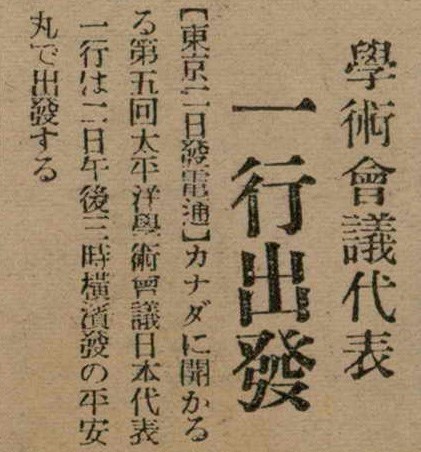 學術會議代表
一行出發
【東京二日發電通】カナダに開かる
る第五回太平洋學術會議日本代表
一行は二日午後三時橫濱發の平安
丸で出發する